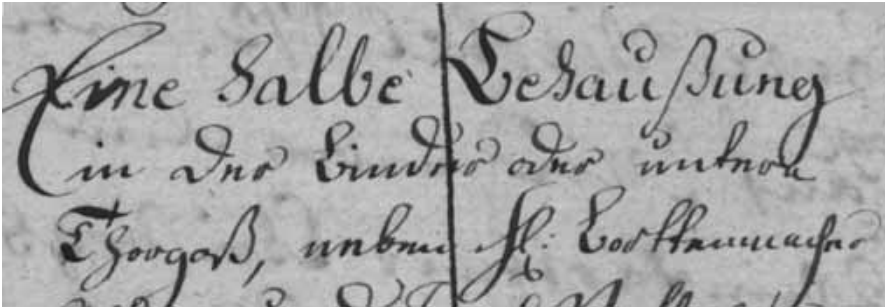 Eine halbe Behaußung
in der Binder oder untern
Thorgaß, neben H: Borttenmacher